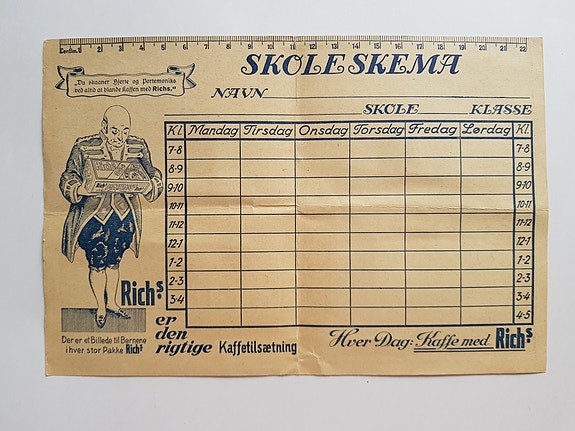 Centim. 1 2 3 4 5 6 7 8 9 10 11 12 13 14 15 16 17 18 19 20 21 22
SKOLESKEMA
"Du skaaner Hjerte og Portemonnæ
ved altid at blande Kaffen med Richs."
NAVN
SKOLE KLASSE
Kl. Mandag Tirsdag Onsdag Torsdag Fredag Lørdag Kl.
7-8 7-8
8-9 8-9
9-10 9-10
10-11 10-11
11-12 11-12
12-1 12-1
1-2 1-2
2-3 2-3
3-4 3-4
4-5
Richs.
er
den
rigtige Kaffetilsætning
Der er et Billede til Børnene
i hver stor Pakke Richs
Hver Dag: Kaffe med Richs.